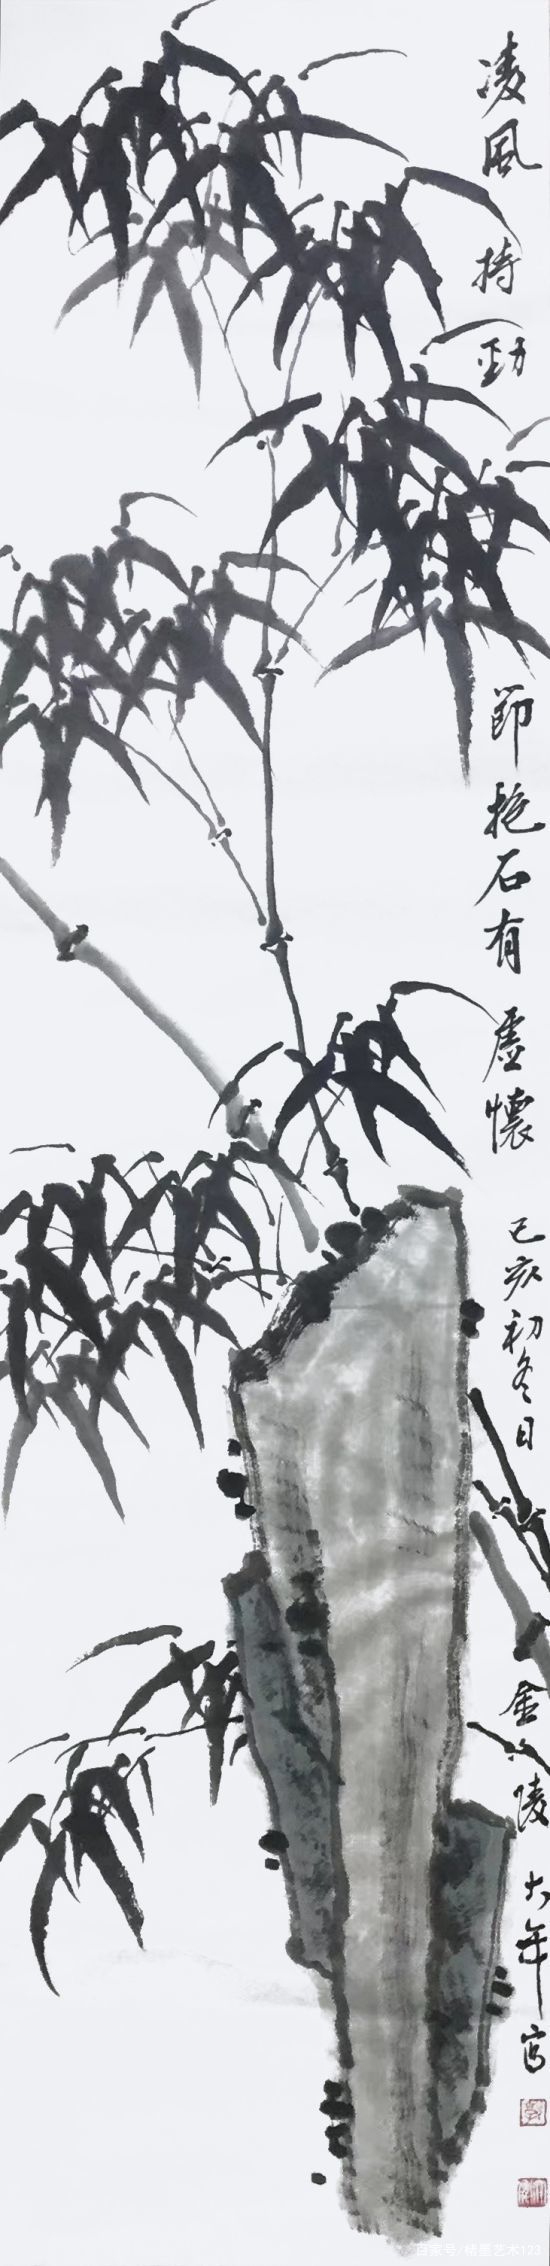 凌風持勁節抱石有虛懷
己亥初冬日
金陵大年寫
百家号/精墨艺术123